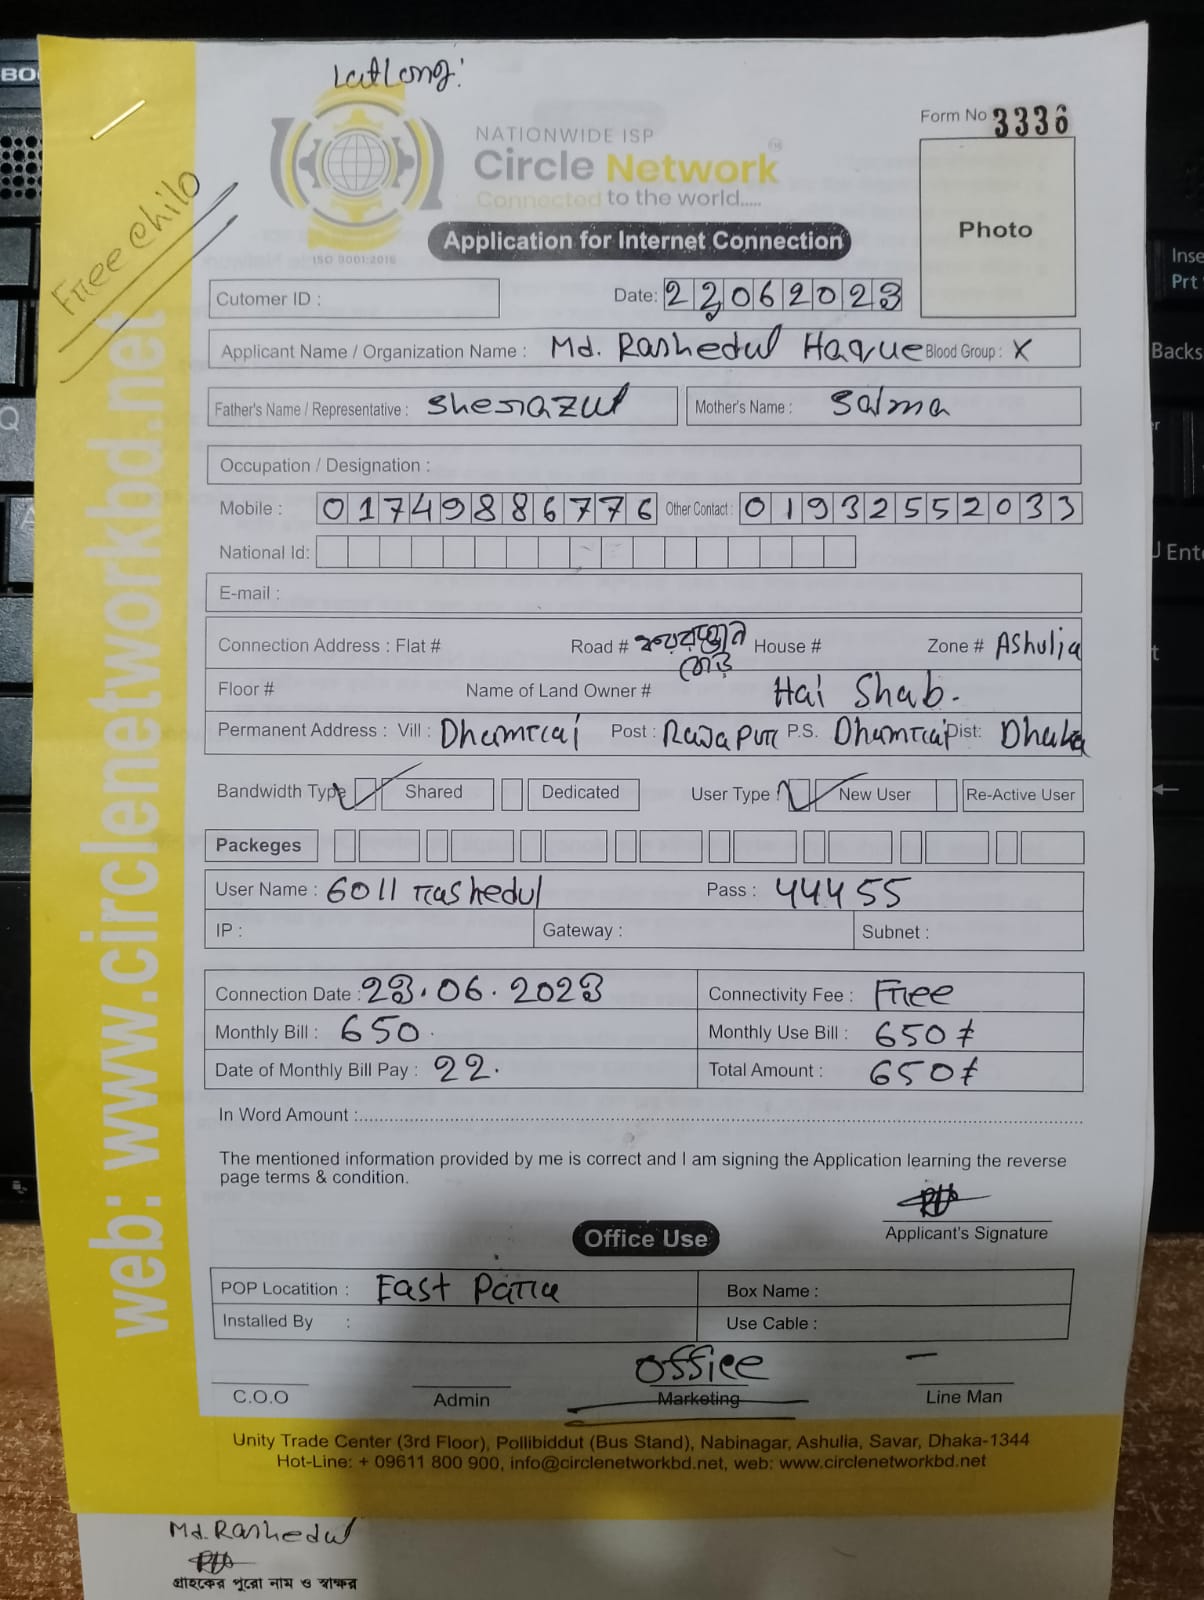 LatLong:
Form No 3336
NATIONWIDE ISP
Circle Network
Connected to the world.....
Photo
Free chilo
ISO 9001:2015
Application for Internet Connection
Cutomer ID :
Date: 22062023
Applicant Name / Organization Name : Md. Rashedul Haque Blood Group : X
Father's Name / Representative : Sherazul Mother's Name : Salma
Occupation / Designation :
Mobile : 01749886776 Other Contact : 01932552033
National Id:
E-mail :
Connection Address : Flat # Road # House # Zone # Ashulia
Floor # Name of Land Owner # Hai Shab.
Permanent Address : Vill : Dhamrai Post : Rajapur P.S. Dhamrai Dist: Dhaka
Bandwidth Type Shared Dedicated User Type : New User Re-Active User
Packeges
User Name : 6011 rashedul Pass : 44455
IP : Gateway : Subnet :
Connection Date : 23.06.2023 Connectivity Fee : Free
Monthly Bill : 650 Monthly Use Bill : 650/=
Date of Monthly Bill Pay : 22. Total Amount : 650/=
In Word Amount :
The mentioned information provided by me is correct and I am signing the Application learning the reverse
page terms & condition.
Applicant's Signature
Office Use
POP Locatition : East Para Box Name :
Installed By : Use Cable :
Office
C.O.O Admin Marketing Line Man
Unity Trade Center (3rd Floor), Pollibiddut (Bus Stand), Nabinagar, Ashulia, Savar, Dhaka-1344
Hot-Line: + 09611 800 900, info@circlenetworkbd.net, web: www.circlenetworkbd.net
web: www.circlenetworkbd.net
Md. Rashedul
গ্রাহকের পুরো নাম ও স্বাক্ষর